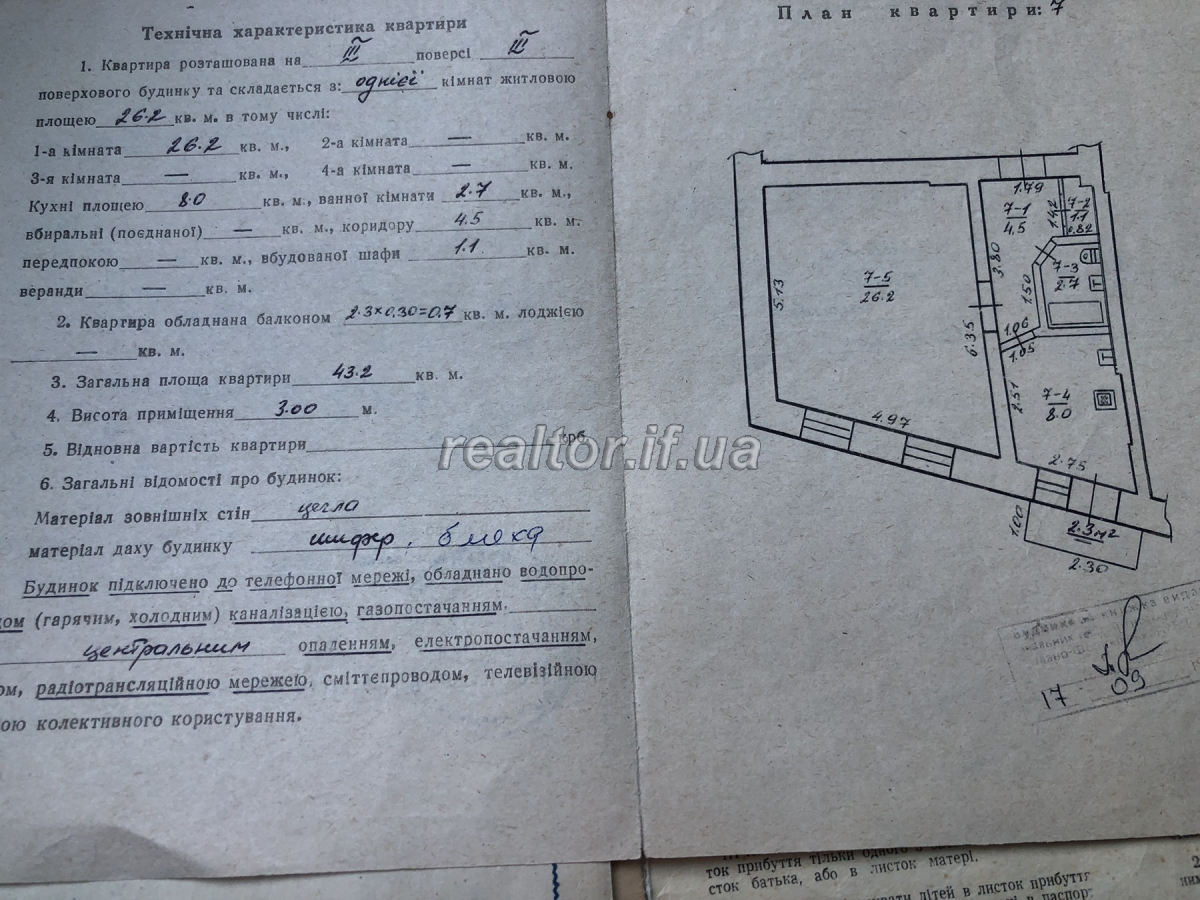 Технічна характеристика квартири
1. Квартира розташована на III поверсі III
поверхового будинку та складається з: однієї кімнат житловою
площею 26.2 кв. м. в тому числі:
1-а кімната 26.2 кв. м., 2-а кімната — кв. м.
3-я кімната — кв. м., 4-а кімната — кв. м.
Кухні площею 8.0 кв. м., ванної кімнати 2.7 кв. м.,
вбиральні (поєднаної) — кв. м., коридору 4.5 кв. м.
передпокою — кв. м., вбудованої шафи 1.1 кв. м.
веранди — кв. м.
2. Квартира обладнана балконом 2.3×0.30=0.7 кв. м. лоджією
— кв. м.
3. Загальна площа квартири 43.2 кв. м.
4. Висота приміщення 3.00 м.
5. Відновна вартість квартири крб.
6. Загальні відомості про будинок:
Матеріал зовнішніх стін цегла
матеріал даху будинку шифер, бляха
Будинок підключено до телефонної мережі, обладнано водопро-
дом (гарячим, холодним) каналізацією, газопостачанням.
центральним опаленням, електропостачанням,
ом, радіотрансляційною мережею, сміттєпроводом, телевізійною
ою колективного користування.
План квартири: 7
1.79
7-1
4.5
1.42
7-2
1.1
0.82
3.80
7-3
2.7
1.50
7-5
26.2
5.13
6.35
1.06
1.05
2.51
7-4
8.0
4.97
2.75
1.00
2.3 м²
2.30
17 09
realtor.if.ua
ток прибуття тільки одного з
сток батька, або в листок матері.
вати дітей в листок прибуття
в паспор-